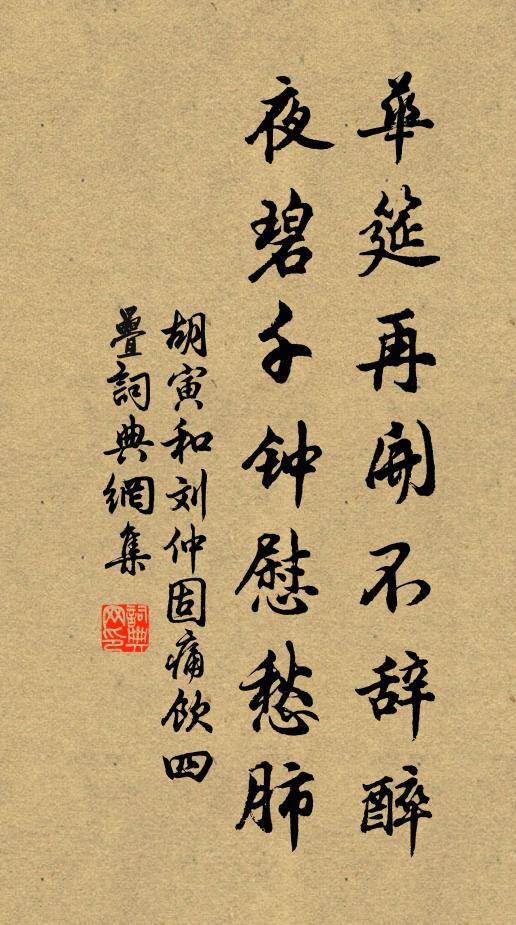 華筵再開不辞醉
夜碧千钟慰愁肺
胡寅和刘仲固痛飲四
疊詞典網集
詞典网印